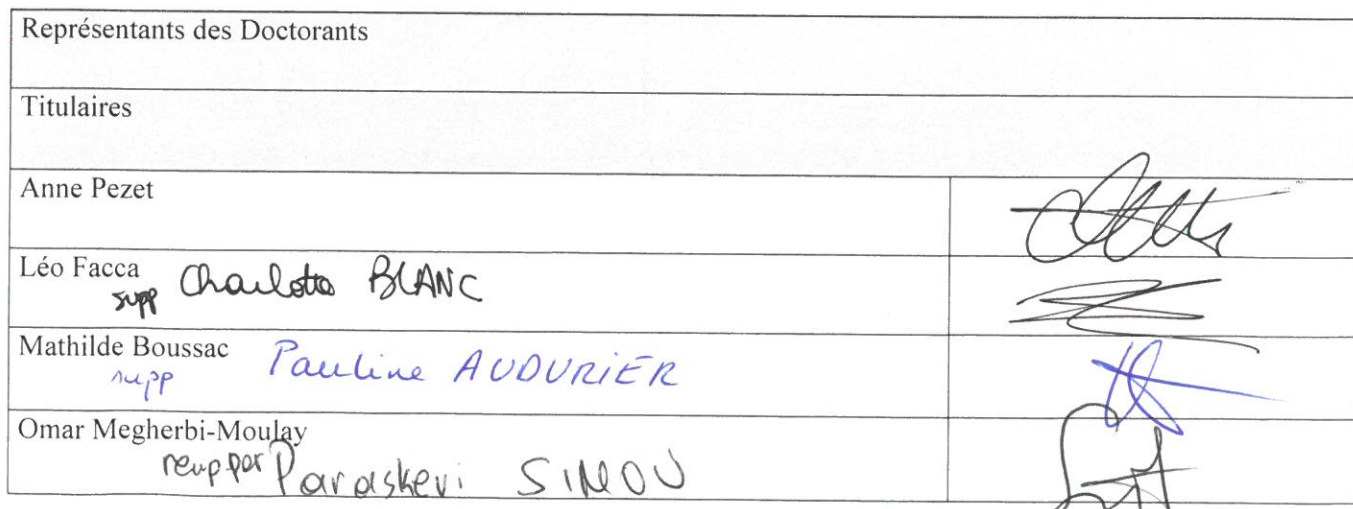 Représentants des Doctorants
Titulaires
Anne Pezet
Léo Facca
supp Charlotte BLANC
Mathilde Boussac
supp Pauline AUDURIER
Omar Megherbi-Moulay
remp par Paraskevi SIMOU